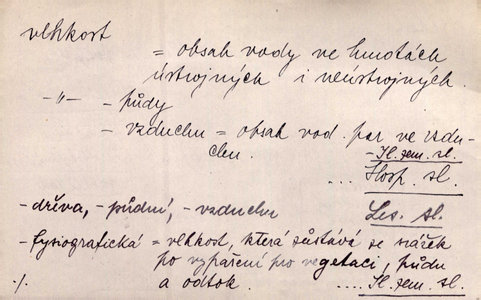 vlhkost
= obsah vody ve hmotách
ústrojných i neústrojných.
-"- - půdy
- vzduchu = obsah vod. par ve vzdu-
chu.
- Zl. zem. sl.
.... Hosp. sl.
- dřeva, - půdní, - vzduchu Les. sl.
- fysiografická = vlhkost, která zůstává ze srážek
po vypaření pro vegetaci, půdu
./. a odtok. .... Zl. zem. sl.